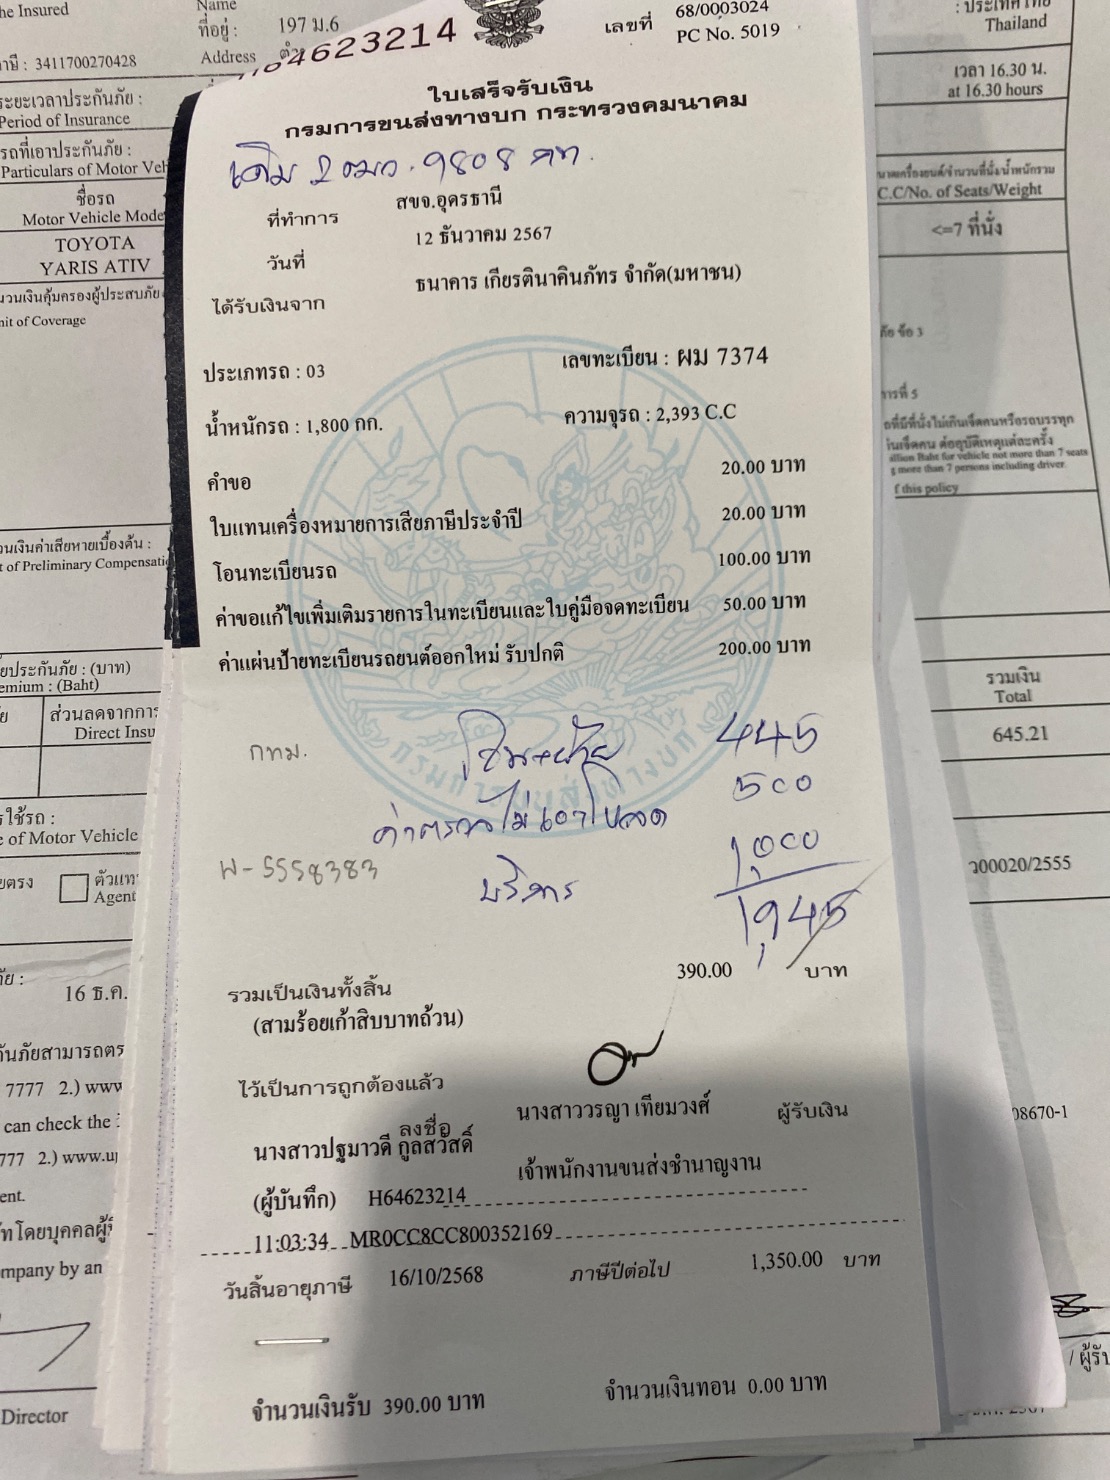 he Insured
Name
ที่อยู่ : 197 ม.6
Address
าษี : 3411700270428
ระยะเวลาประกันภัย :
Period of Insurance
รถที่เอาประกันภัย :
Particulars of Motor Veh
ชื่อรถ
Motor Vehicle Mode
TOYOTA
YARIS ATIV
วนเงินคุ้มครองผู้ประสบภัย
nit of Coverage
วนเงินค่าเสียหายเบื้องต้น :
t of Preliminary Compensatio
ยประกันภัย : (บาท)
emium : (Baht)
ส่วนลดจากการ
Direct Insu
ใช้รถ :
e of Motor Vehicle
ยตรง
ตัวแท
Agent
ภัย :
16 ธ.ค.
กันภัยสามารถตร
7777 2.) www
can check the
777 2.) www.
ent.
ทโดยบุคคลผู้
mpany by an
Director
4623214
เลขที่ 68/0003024
PC No. 5019
ใบเสร็จรับเงิน
กรมการขนส่งทางบก กระทรวงคมนาคม
เดิม 2 ฒว. 9808 กท.
ที่ทำการ สขจ.อุดรธานี
วันที่ 12 ธันวาคม 2567
ได้รับเงินจาก ธนาคาร เกียรตินาคินภัทร จำกัด(มหาชน)
ประเภทรถ : 03 เลขทะเบียน : ผม 7374
น้ำหนักรถ : 1,800 กก. ความจุรถ : 2,393 C.C
คำขอ 20.00 บาท
ใบแทนเครื่องหมายการเสียภาษีประจำปี 20.00 บาท
โอนทะเบียนรถ 100.00 บาท
ค่าขอแก้ไขเพิ่มเติมรายการในทะเบียนและใบคู่มือจดทะเบียน 50.00 บาท
ค่าแผ่นป้ายทะเบียนรถยนต์ออกใหม่ รับปกติ 200.00 บาท
กรมการขนส่งทางบก
กทม. โอน+ย้าย 445
ค่าตรวจไม่เอาโหลด 500
W-5558383 บริการ 1,000
1,945
รวมเป็นเงินทั้งสิ้น 390.00 บาท
(สามร้อยเก้าสิบบาทถ้วน)
ไว้เป็นการถูกต้องแล้ว
ลงชื่อ นางสาววรญา เทียมวงศ์ ผู้รับเงิน
นางสาวปฐมาวดี กูลสวัสดิ์
เจ้าพนักงานขนส่งชำนาญงาน
(ผู้บันทึก) H64623214
11:03:34 MR0CC8CC800352169
วันสิ้นอายุภาษี 16/10/2568 ภาษีปีต่อไป 1,350.00 บาท
จำนวนเงินรับ 390.00 บาท จำนวนเงินทอน 0.00 บาท
: ประเทศไทย
Thailand
เวลา 16.30 น.
at 16.30 hours
C.C/No. of Seats/Weight
<=7 ที่นั่ง
ภัย ข้อ 3
การที่ 5
ถที่มีที่นั่งไม่เกินเจ็ดคนหรือรถบรรทุก
ินเจ็ดคน ต่ออุบัติเหตุแต่ละครั้ง
illion Baht for vehicle not more than 7 seats
g more than 7 persons including driver
f this policy
รวมเงิน
Total
645.21
ว00020/2555
08670-1
/ ผู้รับ